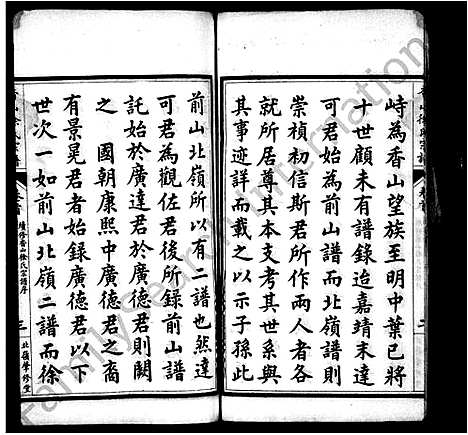 峙為香山望族至明中葉已將
十世顧未有譜錄迨嘉靖末達
可君為前山譜而北嶺譜則
崇禎初信斯君所作兩人者各
就所居尊其本支考其世系與
其事迹詳而載之以示子孫此
前山北嶺所以有二譜也然達
可君為觀佐君後所錄前山譜
託始於廣達君於廣德君則闕
之 國朝康熙中廣德君之裔
有景晃君者始以廣德君以下
世次一如前山北嶺二譜而徐
續修香山徐氏宗譜序
三
北嶺修堂
二
FamilySearch International